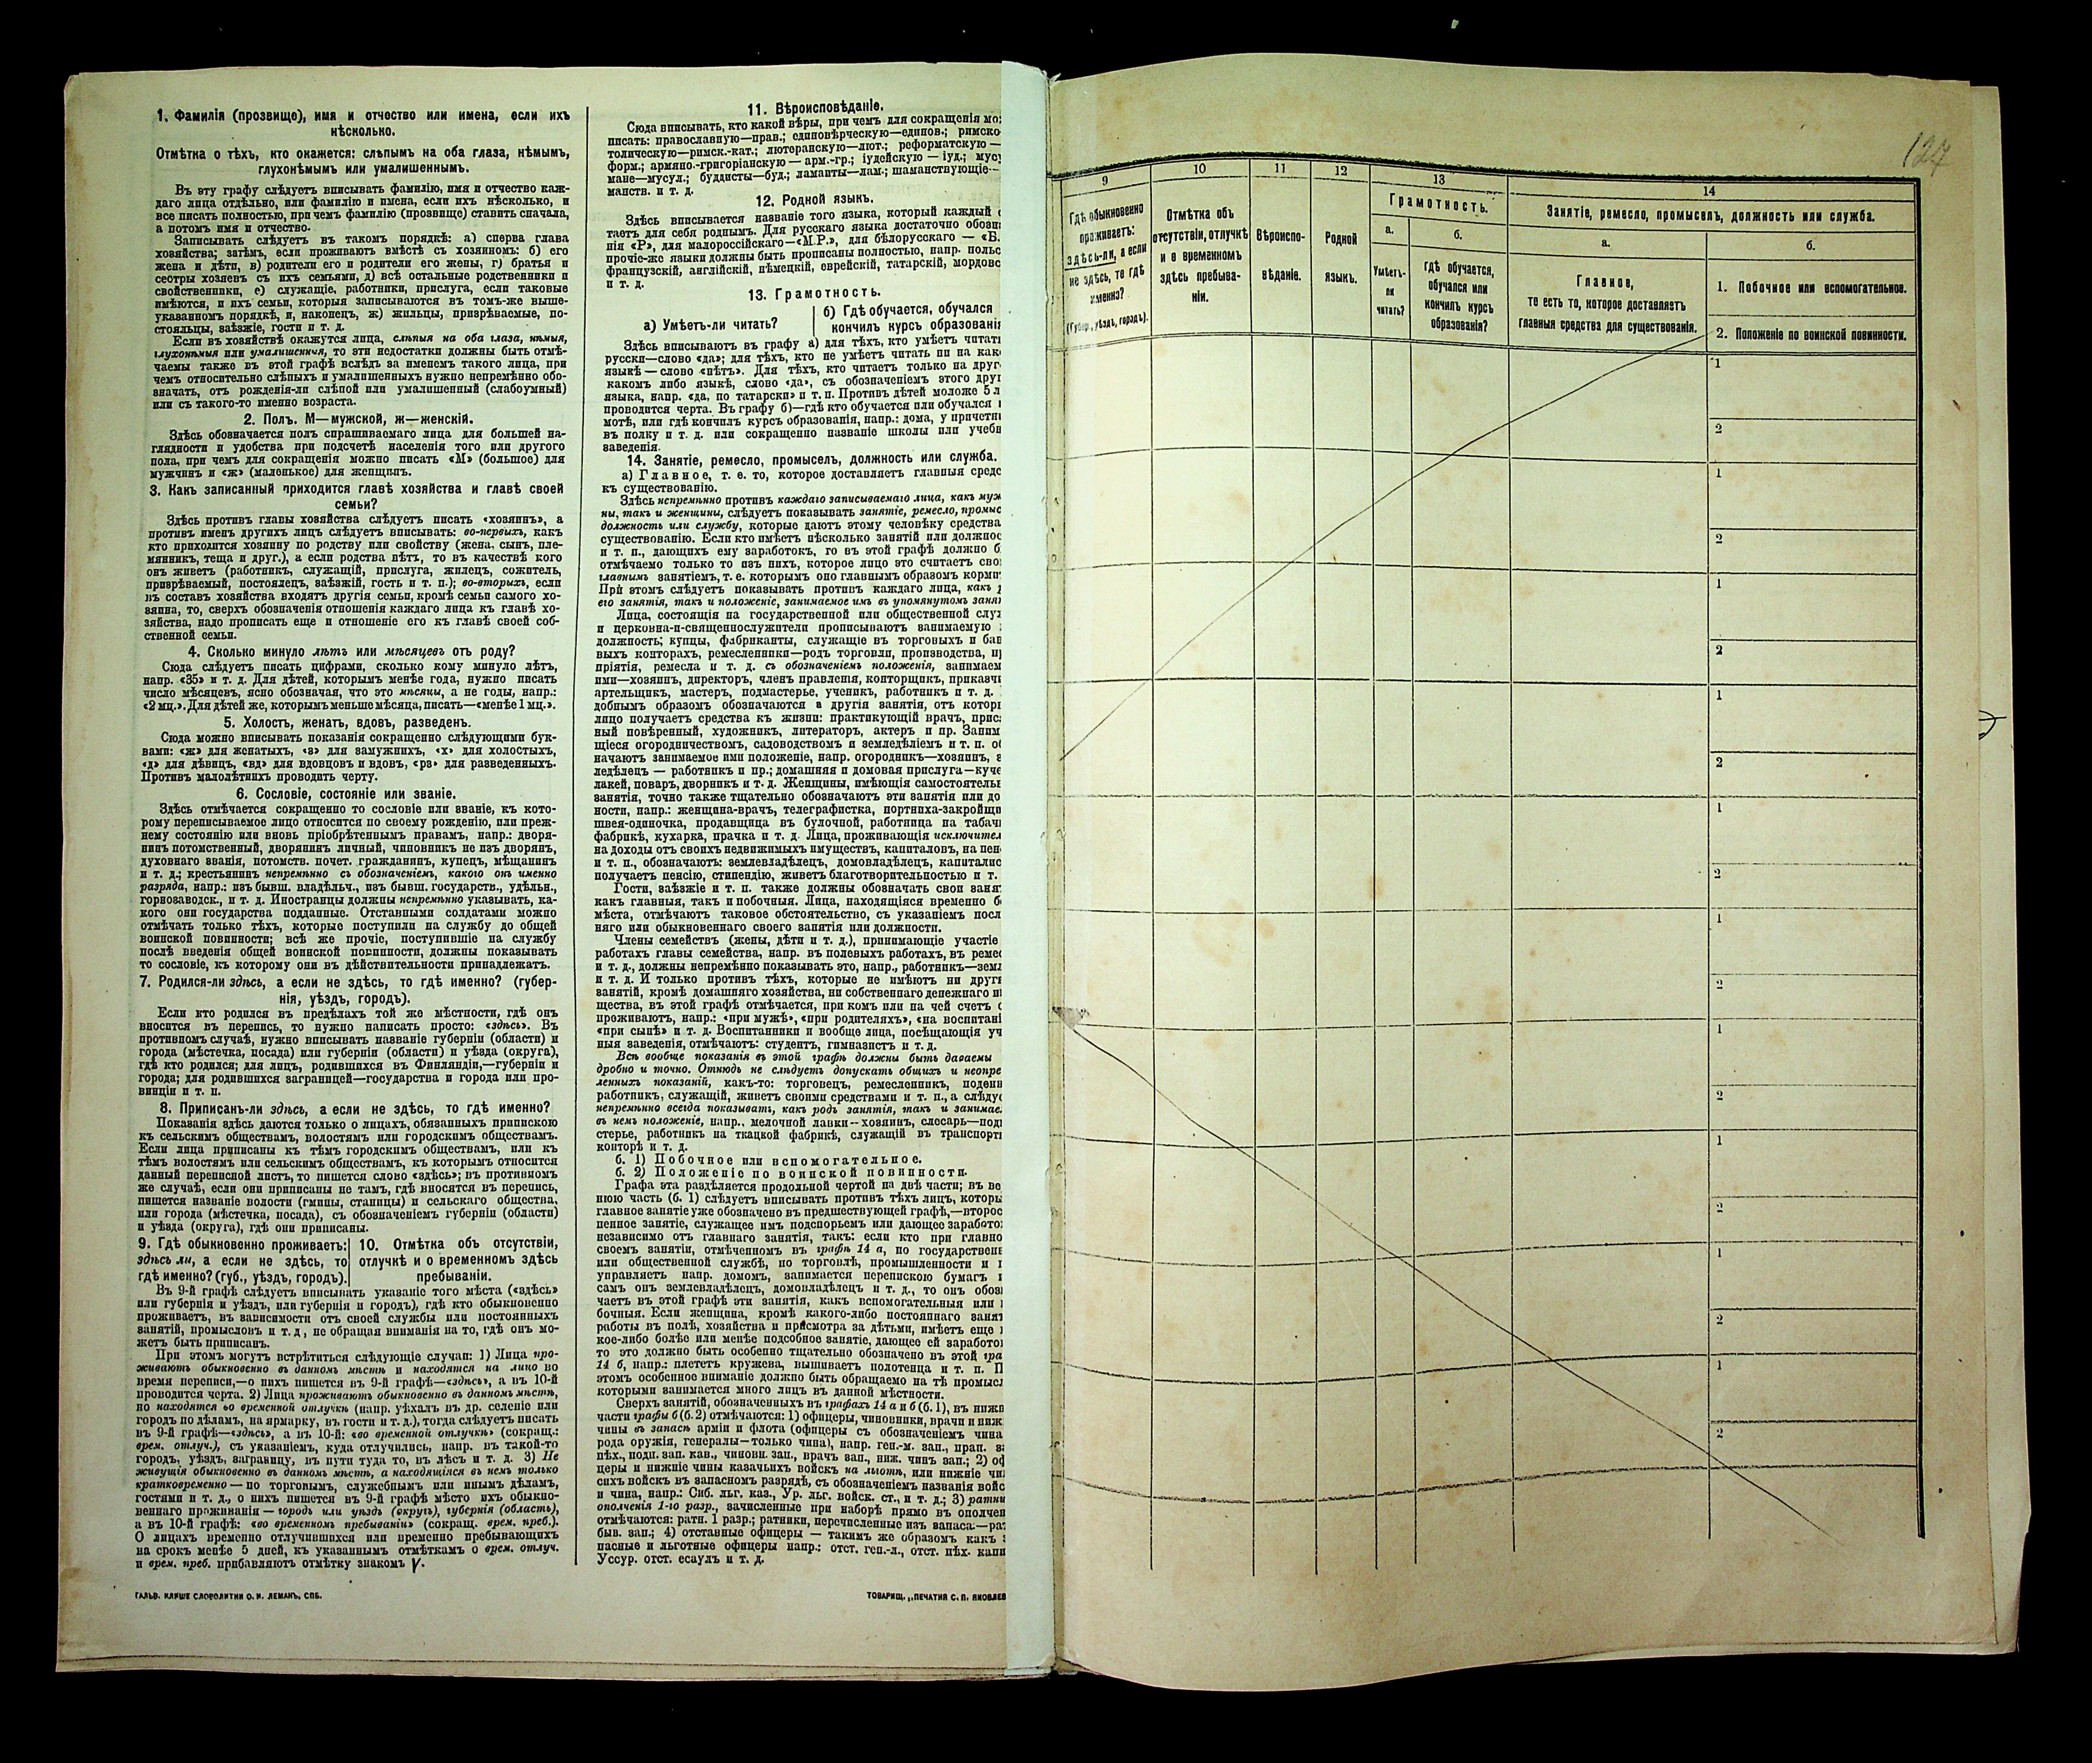 1. Фамилія (прозвище), имя и отчество или имена, если ихъ
нѣсколько.
Отмѣтка о тѣхъ, кто окажется: слѣпымъ на оба глаза, нѣмымъ,
глухонѣмымъ или умалишеннымъ.
Въ эту графу слѣдуетъ вписывать фамилію, имя и отчество каж-
даго лица отдѣльно, или фамилію и имена, если ихъ нѣсколько, и
все писать полностью, при чемъ фамилію (прозвище) ставить сначала,
а потомъ имя и отчество.
Записывать слѣдуетъ въ такомъ порядкѣ: а) сперва глава
хозяйства; затѣмъ, если проживаютъ вмѣстѣ съ хозяиномъ: б) его
жена и дѣти, в) родители его и родители его жены, г) братья и
сестры хозяевъ съ ихъ семьями, д) всѣ остальные родственники и
свойственники, е) служащіе, работники, прислуга, если таковые
имѣются, и ихъ семьи, которыя записываются въ томъ-же выше-
указанномъ порядкѣ, и, наконецъ, ж) жильцы, призрѣваемые, по-
стояльцы, заѣзжіе, гости и т. д.
Если въ хозяйствѣ окажутся лица, слѣпыя на оба глаза, нѣмыя,
глухонѣмыя или умалишенныя, то эти недостатки должны быть отмѣ-
чаемы также въ этой графѣ вслѣдъ за именемъ такого лица, при
чемъ относительно слѣпыхъ и умалишенныхъ нужно непремѣнно обо-
значать, отъ рожденія-ли слѣпой или умалишенный (слабоумный)
или съ такого-то именно возраста.
2. Полъ. М—мужской, ж—женскій.
Здѣсь обозначается полъ спрашиваемаго лица для большей на-
глядности и удобства при подсчетѣ населенія того или другого
пола, при чемъ для сокращенія можно писать «М» (большое) для
мужчинъ и «ж» (маленькое) для женщинъ.
3. Какъ записанный приходится главѣ хозяйства и главѣ своей
семьи?
Здѣсь противъ главы хозяйства слѣдуетъ писать «хозяинъ», а
противъ именъ другихъ лицъ слѣдуетъ вписывать: во-первыхъ, какъ
кто приходится хозяину по родству или свойству (жена, сынъ, пле-
мянникъ, теща и друг.), а если родства нѣтъ, то въ качествѣ кого
онъ живетъ (работникъ, служащій, прислуга, жилецъ, сожитель,
призрѣваемый, постоялецъ, заѣзжій, гость и т. п.); во-вторыхъ, если
въ составъ хозяйства входятъ другія семьи, кромѣ семьи самого хо-
зяина, то, сверхъ обозначенія отношенія каждаго лица къ главѣ хо-
зяйства, надо прописать еще и отношеніе его къ главѣ своей соб-
ственной семьи.
4. Сколько минуло лѣтъ или мѣсяцевъ отъ роду?
Сюда слѣдуетъ писать цифрами, сколько кому минуло лѣтъ,
напр. «35» и т. д. Для дѣтей, которымъ менѣе года, нужно писать
число мѣсяцевъ, ясно обозначая, что это мѣсяцы, а не годы, напр.:
«2 мц.». Для дѣтей же, которымъ меньше мѣсяца, писать—«менѣе 1 мц.».
5. Холостъ, женатъ, вдовъ, разведенъ.
Сюда можно вписывать показанія сокращенно слѣдующими бук-
вами: «ж» для женатыхъ, «з» для замужнихъ, «х» для холостыхъ,
«д» для дѣвицъ, «вд» для вдовцовъ и вдовъ, «рз» для разведенныхъ.
Противъ малолѣтнихъ проводить черту.
6. Сословіе, состояніе или званіе.
Здѣсь отмѣчается сокращенно то сословіе или званіе, къ кото-
рому переписываемое лицо относится по своему рожденію, или преж-
нему состоянію или вновь пріобрѣтеннымъ правамъ, напр.: дворя-
нинъ потомственный, дворянинъ личный, чиновникъ не изъ дворянъ,
духовнаго званія, потомств. почет. гражданинъ, купецъ, мѣщанинъ
и т. д.; крестьянинъ непремѣнно съ обозначеніемъ, какого онъ именно
разряда, напр.: изъ бывш. владѣльч., изъ бывш. государств., удѣльн.,
горнозаводск., и т. д. Иностранцы должны непремѣнно указывать, ка-
кого они государства подданные. Отставными солдатами можно
отмѣчать только тѣхъ, которые поступили на службу до общей
воинской повинности; всѣ же прочіе, поступившіе на службу
послѣ введенія общей воинской повинности, должны показывать
то сословіе, къ которому они въ дѣйствительности принадлежатъ.
7. Родился-ли здѣсь, а если не здѣсь, то гдѣ именно? (губер-
нія, уѣздъ, городъ).
Если кто родился въ предѣлахъ той же мѣстности, гдѣ онъ
вносится въ перепись, то нужно написать просто: «здѣсь». Въ
противномъ случаѣ, нужно вписывать названіе губерніи (области) и
города (мѣстечка, посада) или губерніи (области) и уѣзда (округа),
гдѣ кто родился; для лицъ, родившихся въ Финляндіи,—губерніи и
города; для родившихся заграницей—государства и города или про-
винціи и т. п.
8. Приписанъ-ли здѣсь, а если не здѣсь, то гдѣ именно?
Показанія здѣсь даются только о лицахъ, обязанныхъ припискою
къ сельскимъ обществамъ, волостямъ или городскимъ обществамъ.
Если лица приписаны къ тѣмъ городскимъ обществамъ, или къ
тѣмъ волостямъ или сельскимъ обществамъ, къ которымъ относится
данный переписной листъ, то пишется слово «здѣсь»; въ противномъ
же случаѣ, если они приписаны не тамъ, гдѣ вносятся въ перепись,
пишется названіе волости (гмины, станицы) и сельскаго общества,
или города (мѣстечка, посада), съ обозначеніемъ губерніи (области)
и уѣзда (округа), гдѣ они приписаны.
9. Гдѣ обыкновенно проживаетъ:
здѣсь ли, а если не здѣсь, то
гдѣ именно? (губ., уѣздъ, городъ).
10. Отмѣтка объ отсутствіи,
отлучкѣ и о временномъ здѣсь
пребываніи.
Въ 9-й графѣ слѣдуетъ вписывать указаніе того мѣста («здѣсь»
или губернія и уѣздъ, или губернія и городъ), гдѣ кто обыкновенно
проживаетъ, въ зависимости отъ своей службы или постоянныхъ
занятій, промысловъ и т. д, не обращая вниманія на то, гдѣ онъ мо-
жетъ быть приписанъ.
При этомъ могутъ встрѣтиться слѣдующіе случаи: 1) Лица про-
живаютъ обыкновенно въ данномъ мѣстѣ и находятся на лицо во
время переписи,—о нихъ пишется въ 9-й графѣ—«здѣсь», а въ 10-й
проводится черта. 2) Лица проживаютъ обыкновенно въ данномъ мѣстѣ,
но находятся во временной отлучкѣ (напр. уѣхалъ въ др. селеніе или
городъ по дѣламъ, на ярмарку, въ гости и т. д.), тогда слѣдуетъ писать
въ 9-й графѣ—«здѣсь», а въ 10-й: «во временной отлучкѣ» (сокращ.:
врем. отлуч.), съ указаніемъ, куда отлучились, напр. въ такой-то
городъ, уѣздъ, заграницу, въ пути туда то, въ лѣсъ и т. д. 3) Не
живущія обыкновенно въ данномъ мѣстѣ, а находящіяся въ немъ только
кратковременно — по торговымъ, служебнымъ или инымъ дѣламъ,
гостями и т. д., о нихъ пишется въ 9-й графѣ мѣсто ихъ обыкно-
веннаго проживанія — городъ или уѣздъ (округъ), губернія (область),
а въ 10-й графѣ: «во временномъ пребываніи» (сокращ. врем. преб.).
О лицахъ временно отлучившихся или временно пребывающихъ
на срокъ менѣе 5 дней, къ указаннымъ отмѣткамъ о врем. отлуч.
и врем. преб. прибавляютъ отмѣтку знакомъ V.
ГАЛЬВ. КЛИШЕ СЛОВОЛИТНИ О. И. ЛЕМАНЪ, СПБ.
11. Вѣроисповѣданіе.
Сюда вписывать, кто какой вѣры, при чемъ для сокращенія мо
писать: православную—прав.; единовѣрческую—единов.; римско
толическую—римск.-кат.; лютеранскую—лют.; реформатскую —
форм.; армяно.-григоріанскую — арм.-гр.; іудейскую — іуд.; мус
мане—мусул.; буддисты—буд.; ламаиты—лам.; шаманствующіе—
манств. и т. д.
12. Родной языкъ.
Здѣсь вписывается названіе того языка, который каждый
таетъ для себя роднымъ. Для русскаго языка достаточно обозн
нія «Р», для малороссійскаго—«М.Р.», для бѣлорусскаго — «Б.
прочіе-же языки должны быть прописаны полностью, напр. польс
французскій, англійскій, нѣмецкій, еврейскій, татарскій, мордовс
и т. д.
13. Грамотность.
а) Умѣетъ-ли читать?
б) Гдѣ обучается, обучался
кончилъ курсъ образовані
Здѣсь вписываютъ въ графу а) для тѣхъ, кто умѣетъ читат
русски—слово «да»; для тѣхъ, кто не умѣетъ читать ни на как
языкѣ — слово «нѣтъ». Для тѣхъ, кто читаетъ только на друг
какомъ либо языкѣ, слово «да», съ обозначеніемъ этого друг
языка, напр. «да, по татарски» и т. п. Противъ дѣтей моложе 5 л
проводится черта. Въ графу б)—гдѣ кто обучается или обучался
мотѣ, или гдѣ кончилъ курсъ образованія, напр.: дома, у причетн
въ полку и т. д. или сокращенно названіе школы или учебн
заведенія.
14. Занятіе, ремесло, промыселъ, должность или служба.
а) Главное, т. е. то, которое доставляетъ главныя средс
къ существованію.
Здѣсь непремѣнно противъ каждаго записываемаго лица, какъ муж
ны, такъ и женщины, слѣдуетъ показывать занятіе, ремесло, промыс
должность или службу, которые даютъ этому человѣку средства
существованію. Если кто имѣетъ нѣсколько занятій или должнос
и т. п., дающихъ ему заработокъ, то въ этой графѣ должно б
отмѣчаемо только то изъ нихъ, которое лицо это считаетъ сво
главнымъ занятіемъ, т. е. которымъ оно главнымъ образомъ корми
При этомъ слѣдуетъ показывать противъ каждаго лица, какъ
его занятія, такъ и положеніе, занимаемое имъ въ упомянутомъ занят
Лица, состоящія на государственной или общественной служ
и церковна-и-священнослужители прописываютъ занимаемую
должность; купцы, фабриканты, служащіе въ торговыхъ и бан
выхъ конторахъ, ремесленники—родъ торговли, производства, п
пріятія, ремесла и т. д. съ обозначеніемъ положенія, занимаем
ими—хозяинъ, директоръ, членъ правленія, конторщикъ, приказч
артельщикъ, мастеръ, подмастерье, ученикъ, работникъ и т. д.
добнымъ образомъ обозначаются и другія занятія, отъ котор
лицо получаетъ средства къ жизни: практикующій врачъ, прис
ный повѣренный, художникъ, литераторъ, актеръ и пр. Заним
щіеся огородничествомъ, садоводствомъ и земледѣліемъ и т. п. о
начаютъ занимаемое ими положеніе, напр. огородникъ—хозяинъ,
ледѣлецъ — работникъ и пр.; домашняя и домовая прислуга—куче
лакей, поваръ, дворникъ и т. д. Женщины, имѣющія самостоятель
занятія, точно также тщательно обозначаютъ эти занятія или до
ности, напр.: женщина-врачъ, телеграфистка, портниха-закройщи
швея-одиночка, продавщица въ булочной, работница на табач
фабрикѣ, кухарка, прачка и т. д. Лица, проживающія исключител
на доходы отъ своихъ недвижимыхъ имуществъ, капиталовъ, на пен
и т. п., обозначаютъ: землевладѣлецъ, домовладѣлецъ, капиталис
получаетъ пенсію, стипендію, живетъ благотворительностью и т.
Гости, заѣзжіе и т. п. также должны обозначать свои заня
какъ главныя, такъ и побочныя. Лица, находящіяся временно б
мѣста, отмѣчаютъ таковое обстоятельство, съ указаніемъ посл
няго или обыкновеннаго своего занятія или должности.
Члены семействъ (жены, дѣти и т. д.), принимающіе участіе
работахъ главы семейства, напр. въ полевыхъ работахъ, въ ремес
и т. д., должны непремѣнно показывать это, напр., работникъ—земл
и т. д. И только противъ тѣхъ, которые не имѣютъ ни друг
занятій, кромѣ домашняго хозяйства, ни собственнаго денежнаго и
щества, въ этой графѣ отмѣчается, при комъ или на чей счетъ
проживаютъ, напр.: «при мужѣ», «при родителяхъ», «на воспитані
«при сынѣ» и т. д. Воспитанники и вообще лица, посѣщающія уч
ныя заведенія, отмѣчаютъ: студентъ, гимназистъ и т. д.
Всѣ вообще показанія въ этой графѣ должны быть даваемы
дробно и точно. Отнюдь не слѣдуетъ допускать общихъ и неопре
ленныхъ показаній, какъ-то: торговецъ, ремесленникъ, поденщ
работникъ, служащій, живетъ своими средствами и т. п., а слѣду
непремѣнно всегда показывать, какъ родъ занятія, такъ и занимае
въ немъ положеніе, напр., мелочной лавки—хозяинъ, слесарь—под
стерье, работникъ на ткацкой фабрикѣ, служащій въ транспорт
конторѣ и т. д.
б. 1) Побочное или вспомогательное.
б. 2) Положеніе по воинской повинности.
Графа эта раздѣляется продольной чертой на двѣ части; въ ве
нюю часть (б. 1) слѣдуетъ вписывать противъ тѣхъ лицъ, котор
главное занятіе уже обозначено въ предшествующей графѣ,—второс
пенное занятіе, служащее имъ подспорьемъ или дающее заработо
независимо отъ главнаго занятія, такъ: если кто при главно
своемъ занятіи, отмѣченномъ въ графѣ 14 а, по государствен
или общественной службѣ, по торговлѣ, промышленности и
управляетъ напр. домомъ, занимается перепискою бумагъ
самъ онъ землевладѣлецъ, домовладѣлецъ и т. д., то онъ обоз
чаетъ въ этой графѣ эти занятія, какъ вспомогательныя или
бочныя. Если женщина, кромѣ какого-либо постояннаго заня
работы въ полѣ, хозяйства и присмотра за дѣтьми, имѣетъ еще
кое-либо болѣе или менѣе подсобное занятіе, дающее ей заработо
то это должно быть особенно тщательно обозначено въ этой гра
14 б, напр.: плететъ кружева, вышиваетъ полотенца и т. п. П
этомъ особенное вниманіе должно быть обращаемо на тѣ промысл
которыми занимается много лицъ въ данной мѣстности.
Сверхъ занятій, обозначенныхъ въ графахъ 14 а и б (б. 1), въ нижн
части графы б (б. 2) отмѣчаются: 1) офицеры, чиновники, врачи и ниж
чины въ запасѣ арміи и флота (офицеры съ обозначеніемъ чина
рода оружія, генералы—только чина), напр. ген.-м. зап., прап. з
пѣх., подп. зап. кав., чиновн. зап., врачъ зап., ниж. чинъ зап.; 2) оф
церы и нижніе чины казачьихъ войскъ на льготѣ, или нижніе чи
сихъ войскъ въ запасномъ разрядѣ, съ обозначеніемъ названія войс
и чина, напр.: Сиб. льг. каз., Ур. льг. войск. ст., и т. д.; 3) ратни
ополченія 1-го разр., зачисленные при наборѣ прямо въ ополчен
отмѣчаются: ратн. 1 разр.; ратники, перечисленные изъ запаса:—ра
быв. зап.; 4) отставные офицеры — такимъ же образомъ какъ
пасные и льготные офицеры напр.: отст. ген.-л., отст. пѣх. капи
Уссур. отст. есаулъ и т. д.
ТОВАРИЩ. „ПЕЧАТНЯ С. П. ЯКОВЛЕВ
124
9
10
11
12
13
14
Гдѣ обыкновенно
проживаетъ:
здѣсь-ли, а если
не здѣсь, то гдѣ
именно?
(Губер., уѣздъ, городъ).
Отмѣтка объ
отсутствіи, отлучкѣ
и о временномъ
здѣсь пребыва-
ніи.
Вѣроиспо-
вѣданіе.
Родной
языкъ.
Грамотность.
а.
Умѣетъ-
ли
читать?
б.
гдѣ обучается,
обучался или
кончилъ курсъ
образованія?
Занятіе, ремесло, промыселъ, должность или служба.
а.
Главное,
то есть то, которое доставляетъ
главныя средства для существованія.
б.
1. Побочное или вспомогательное.
2. Положеніе по воинской повинности.
1
2
1
2
1
2
1
2
1
2
1
2
1
2
1
2
1
2
1
2